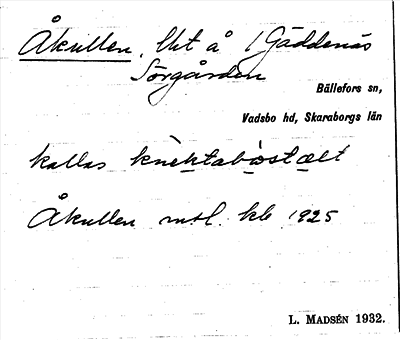 Åkullen, lht å 1 Gäddenäs
Sörgården
Bällefors sn,
Vadsbo hd, Skaraborgs län
kallas
Åkullen msl. kb 1925
L. MADSÉN 1932.